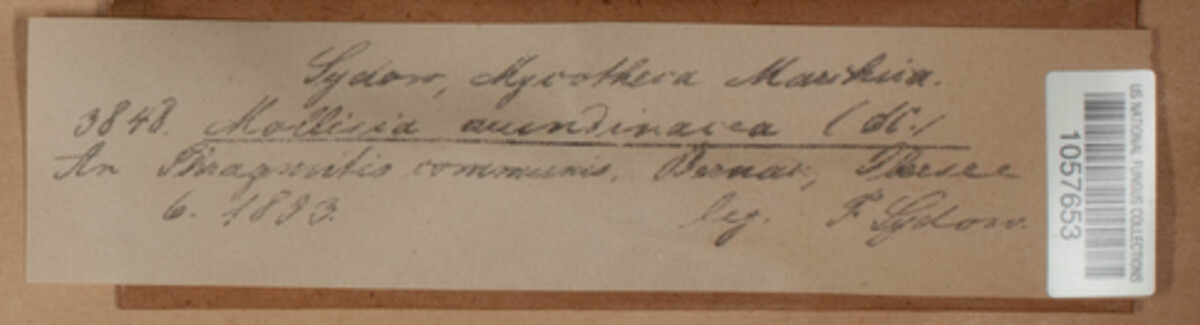 Sydow, Mycotheca Marchica.
3848. Mollisia arundinacea (DC.)
An Phragmitis communis. Bernau,
6. 1893. leg. P. Sydow.
US NATIONAL FUNGUS COLLECTIONS
1057653